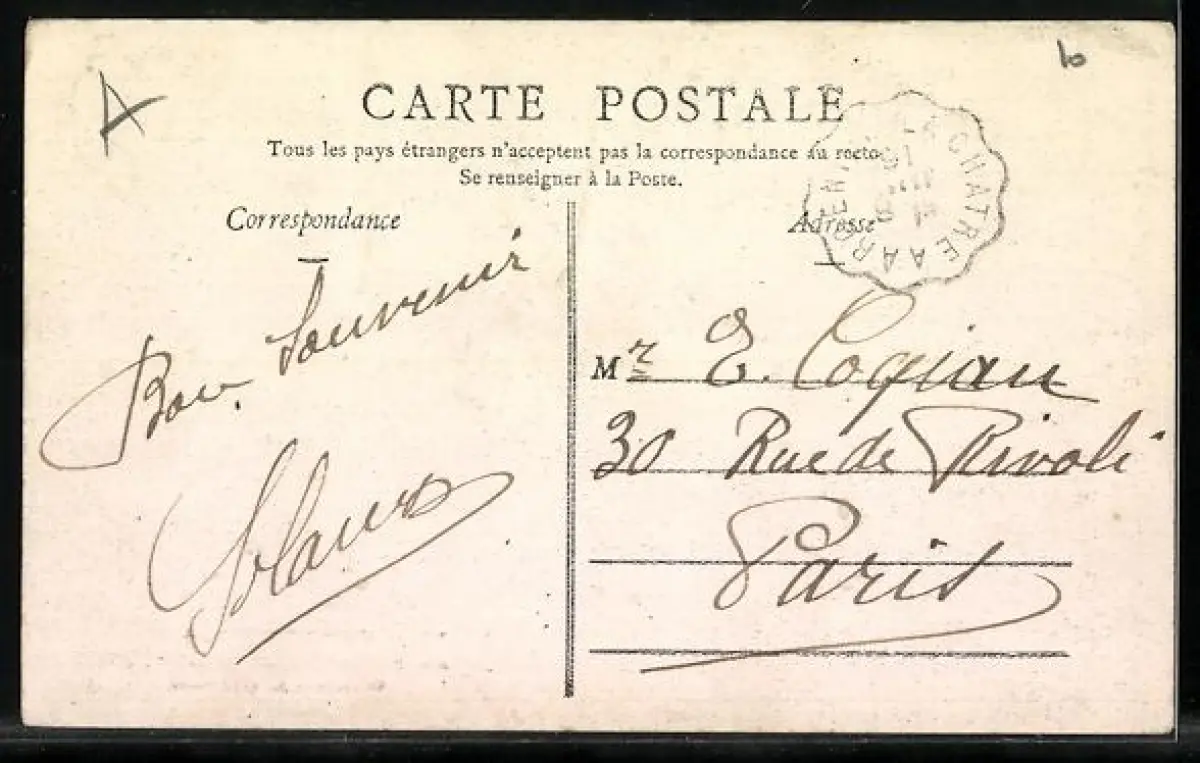 CARTE POSTALE
Tous les pays étrangers n'acceptent pas la correspondance au recto
Se renseigner à la Poste.
Correspondance
Bon Souvenir
Adresse
LA CHATRE A ARGENT
Mr E. Cogian
30 Rue de Rivoli
Paris